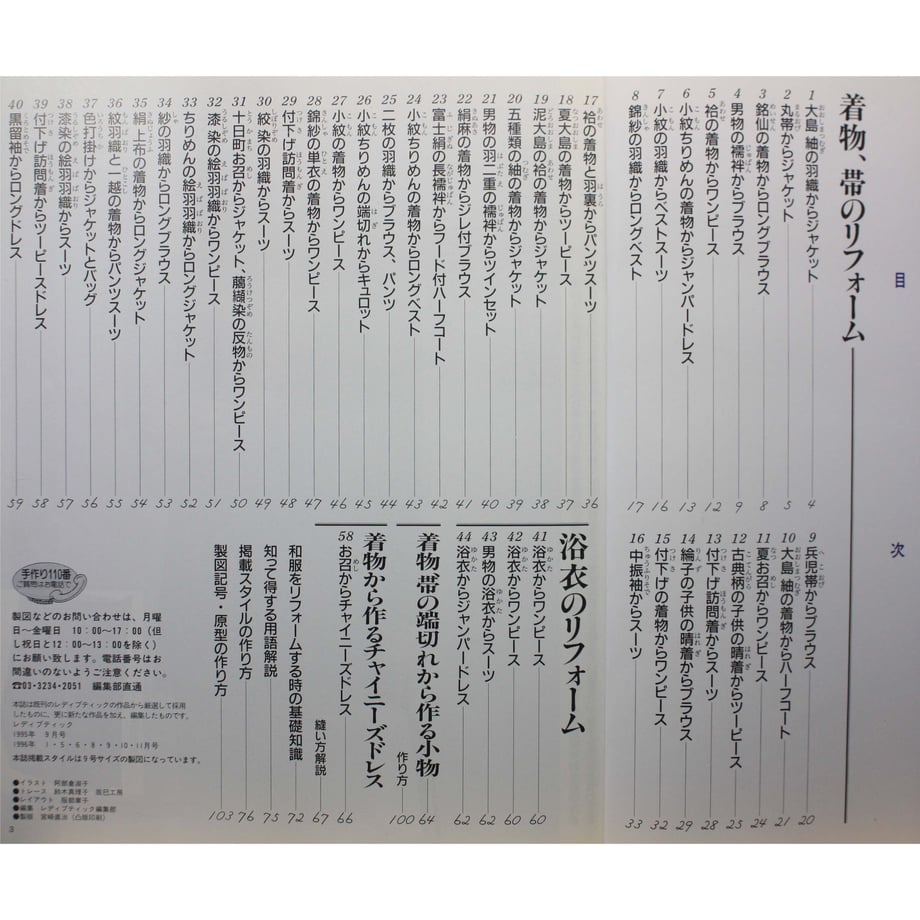 目次
着物、帯のリフォーム
1 大島紬の羽織からジャケット 4
2 丸帯からジャケット 5
3 銘仙の着物からロングブラウス 8
4 男物の襦袢からブラウス 9
5 袷の着物からワンピース 12
6 小紋ちりめんの着物からジャンパードレス 13
7 小紋の羽織からベストスーツ 16
8 錦紗の羽織からロングベスト 17
9 兵児帯からブラウス 20
10 大島紬の着物からハーフコート 21
11 夏お召からワンピース 24
12 古典柄の子供の晴着からツーピース 25
13 付下げ訪問着からスーツ 28
14 綸子の子供の晴着からブラウス 29
15 付下げの着物からワンピース 32
16 中振袖からスーツ 33
17 袷の着物と羽裏からパンツスーツ 36
18 夏大島の着物からツーピース 37
19 泥大島の袷の着物からジャケット 38
20 五種類の紬の着物からジャケット 39
21 男物の羽二重の襦袢からツインセット 40
22 絹麻の着物からジレ付ブラウス 41
23 富士絹の長襦袢からフード付ハーフコート 42
24 小紋ちりめんの着物からロングベスト 43
25 二枚の羽織からブラウス、パンツ 44
26 小紋ちりめんの端切れからキュロット 45
27 小紋の着物からワンピース 46
28 錦紗の単衣の着物からワンピース 47
29 付下げ訪問着からスーツ 48
30 絞染の羽織からスーツ 49
31 十日町お召からジャケット、﨟纈染の反物からワンピース 50
32 漆染の絵羽羽織からワンピース 51
33 ちりめんの絵羽羽織からロングジャケット 52
34 紗の羽織からロングブラウス 53
35 絹上布の着物からロングジャケット 54
36 紋羽織と一越の着物からパンツスーツ 55
37 色打掛けからジャケットとバッグ 56
38 漆染の絵羽羽織からスーツ 57
39 付下げ訪問着からツーピースドレス 58
40 黒留袖からロングドレス 59
浴衣のリフォーム
41 浴衣からワンピース 60
42 浴衣からワンピース 60
43 男物の浴衣からスーツ 62
44 浴衣からジャンパードレス 62
着物 帯の端切れから作る小物 64
作り方 100
着物から作るチャイニーズドレス
58 お召からチャイニーズドレス 66
縫い方解説 67
和服をリフォームする時の基礎知識 72
知って得する用語解説 75
掲載スタイルの作り方 76
製図記号・原型の作り方 103
手作り110番
ご質問はお電話で
製図などのお問い合わせは、月曜
日〜金曜日 10：00〜17：00（但
し祝日と12：00〜13：00を除く）
にお願い致します。電話番号はお
間違いのないようご注意ください。
☎03・3234・2051 編集部直通
本誌は既刊のレディブティックの作品から厳選して採用
したものに、更に新たな作品を加え、編集したものです。
レディブティック
1995年 9月号
1996年 1・5・6・8・9・10・11月号
本誌掲載スタイルは9号サイズの製図になっています。
●イラスト 阿部倉淑子
●トレース 鈴木真理子 辰巳工房
●レイアウト 服部章子
●編集 レディブティック編集部
●製版 宮崎直治（凸版印刷）
3